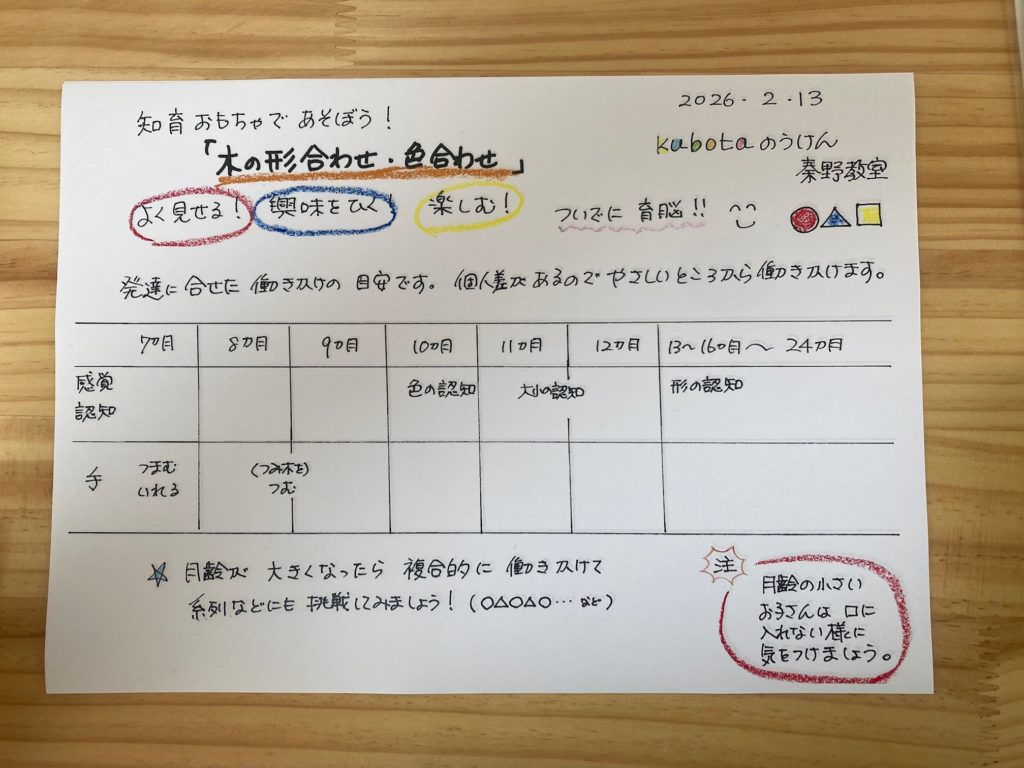 2026.2.13
知育おもちゃであそぼう!
「木の形合わせ・色合わせ」
kubotaのうけん
秦野教室
よく見せる! 興味をひく 楽しむ!
ついでに 育脳!!
発達に合せた働きかけの目安です。個人差があるのでやさしいところから働きかけます。
7カ月 8カ月 9カ月 10カ月 11カ月 12カ月 13〜16カ月〜24カ月
感覚
認知
色の認知 大小の認知 形の認知
手
つまむ
いれる
(つみ木を)
つむ
☆ 月齢が大きくなったら複合的に働きかけて
系列などにも挑戦してみましょう!(○△○△○…など)
注
月齢の小さい
お子さんは口に
入れない様に
気をつけましょう。